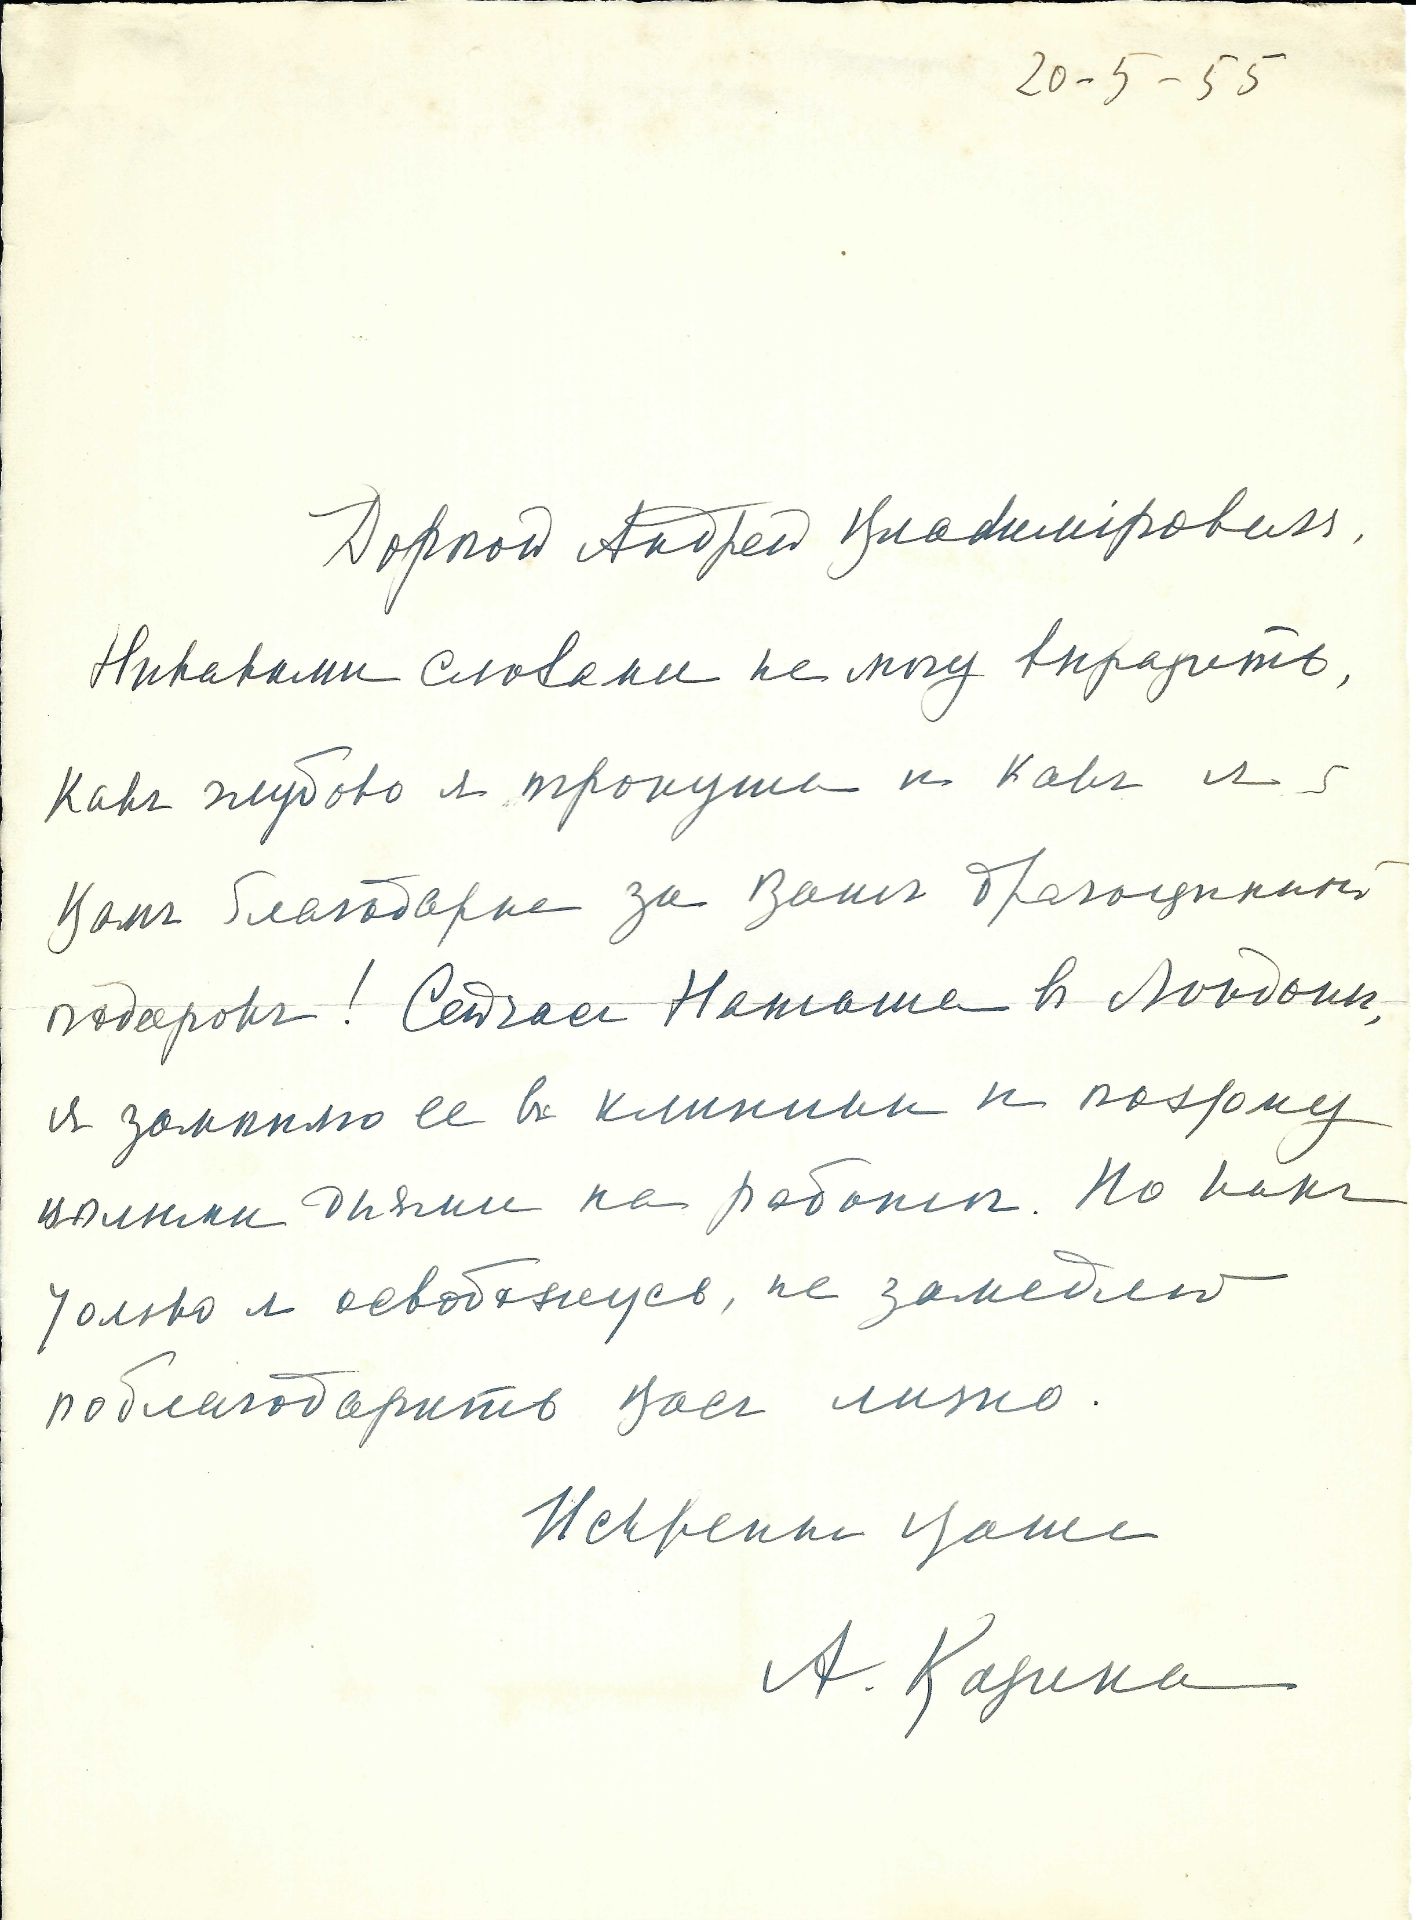 20-5-55
Дорогой Андрей Владиміровичъ,
Никакими словами не могу выразить,
какъ глубоко я тронута и какъ я
Вамъ благодарна за Вашъ драгоценный
подарокъ! Сейчасъ Наташа въ Лондоне,
я заменяю ее въ клинике и поэтому
целыми днями на работе. Но какъ
только я освобожусь, не замедлю
поблагодарить Васъ лично.
Искренне Ваша
А.